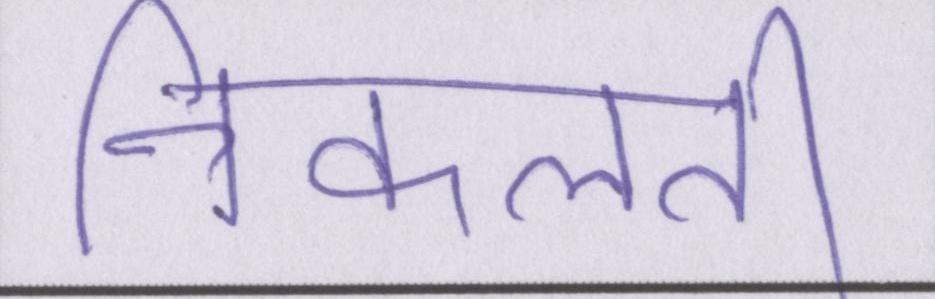 निकलती